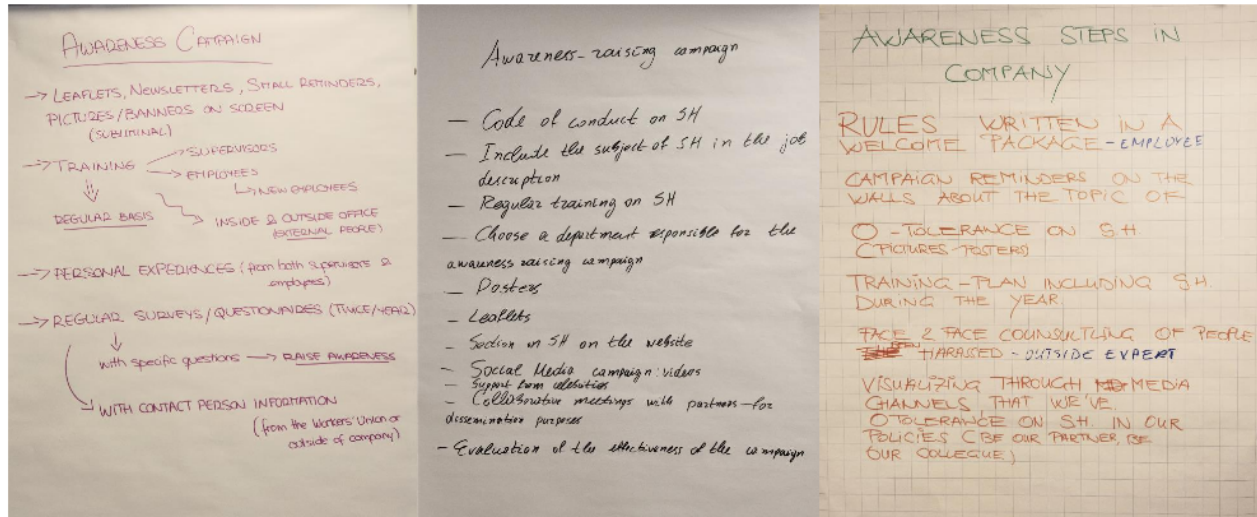 AWARENESS CAMPAIGN
→ LEAFLETS, NEWSLETTERS, SMALL REMINDERS,
PICTURES/BANNERS ON SCREEN
(SUBLIMINAL)
→ TRAINING → SUPERVISORS
→ EMPLOYEES
↳ NEW EMPLOYEES
REGULAR BASIS
INSIDE & OUTSIDE OFFICE
(EXTERNAL PEOPLE)
→ PERSONAL EXPERIENCES (from both supervisors &
employees)
→ REGULAR SURVEYS/QUESTIONAIRES (TWICE/YEAR)
with specific questions → RAISE AWARENESS
→ WITH CONTACT PERSON INFORMATION
(from the Workers' Union or
outside of company)
Awareness-raising campaign
— Code of conduct on SH
— Include the subject of SH in the job
description
— Regular training on SH
— Choose a department responsible for the
awareness raising campaign
— Posters
— Leaflets
— Section on SH on the website
— Social Media campaign: videos
— Support from celebrities
— Collaborative meetings with partners – for
dissemination purposes
— Evaluation of the effectiveness of the campaign
AWARENESS STEPS IN
COMPANY
RULES WRITTEN IN A
WELCOME PACKAGE - EMPLOYEE
CAMPAIGN REMINDERS ON THE
WALLS ABOUT THE TOPIC OF
0 - TOLERANCE ON S.H.
(PICTURES-POSTERS)
TRAINING - PLAN INCLUDING S.H.
DURING THE YEAR.
FACE 2 FACE COUNSULTLING OF PEOPLE
HARASSED - OUTSIDE EXPERT
VISUALIZING THROUGH MEDIA
CHANNELS THAT WE'VE
0 TOLERANCE ON S.H. IN OUR
POLICIES (BE OUR PARTNER, BE
OUR COLLEGUE)